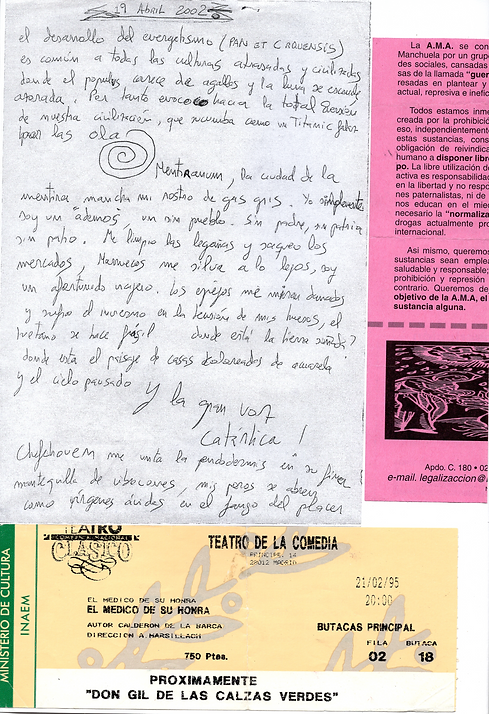 19 Abril 2002
el desarrollo del evergetismo (PAN ET CIRQUENSIS)
es común a todas las culturas atrasadas y civilizadas
donde el populus, carece de agallas y la luna se esconde
Por tanto evoco hacia la total
de nuestra civilización, que sucumba como un Titanic
las olas
Mentiranum, la ciudad de la
mentira mancha mi rostro de gas gris. Yo simplemente
soy un "ademos" un sin pueblo. Sin padre, sin patria
sin patio. Me limpio las legañas y saqueo los
mercados. Marruecos me silva a lo lejos, soy
un afortunado viajero. Los espejos me miran
y sufro el invierno en la tensión de mis huesos, el
se hace frágil donde está la tierra
donde esta el paisaje de casas de acuarela
y el cielo pausado
Y la gran voz
Catártica!
me unta la en su
mantequilla de vibraciones, mis poros se abren
como vírgenes ávidas en el fango del placer
La A.M.A. se con
Manchuela por un grup
des sociales, cansadas
sas de la llamada "guer
resadas en plantear y
actual, represiva e inefic
Todos estamos inme
creada por la prohibició
eso, independientemente
estas sustancias, cons
obligación de reivindica
humano a disponer libre
po. La libre utilización de
activa es responsabilidad
en la libertad y no respo
nes paternalistas, ni de
nos educan en el mied
necesario la "normaliza
drogas actualmente pro
internacional.
Asi mismo, queremos
sustancias sean emplea
saludable y responsable;
prohibición y represión
contrario. Queremos de
objetivo de la A.M.A, el
sustancia alguna.
Apdo. C. 180 • 02
e-mail. legalizaccion@
MINISTERIO DE CULTURA
INAEM
TEATRO
COMPAÑIA NACIONAL
CLASICO
TEATRO DE LA COMEDIA
PRINCIPE, 14
28012 MADRID
21/02/95
20:00
EL MEDICO DE SU HONRA
EL MEDICO DE SU HONRA
AUTOR CALDERON DE LA BARCA
DIRECCION A.MARSILLACH
BUTACAS PRINCIPAL
FILA BUTACA
750 Ptas.
02 18
PROXIMAMENTE
"DON GIL DE LAS CALZAS VERDES"